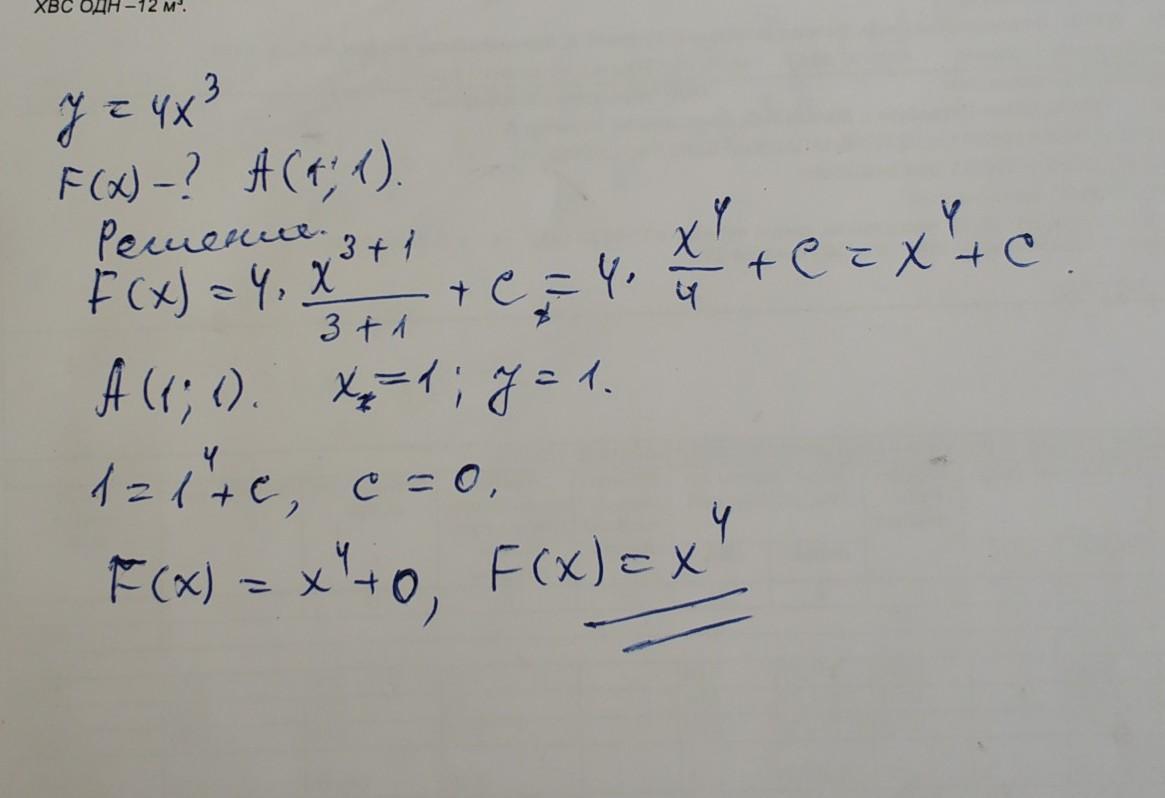 ХВС ОДН – 12 м³.
y = 4x³
F(x) – ? A(1; 1).
Решение.
F(x) = 4 · x^(3+1)/(3+1) + C = 4 · x⁴/4 + C = x⁴ + C.
A(1; 1). x = 1; y = 1.
1 = 1⁴ + C, C = 0.
F(x) = x⁴ + 0, F(x) = x⁴